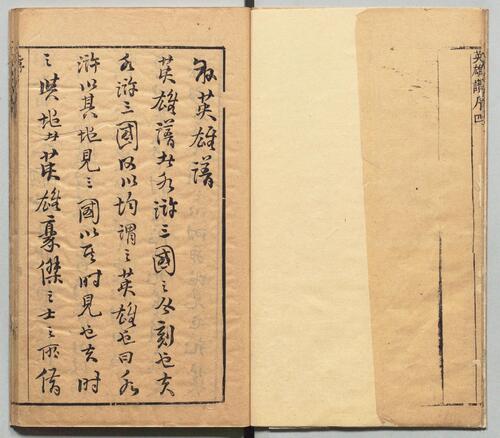 英雄譜序四
叙英雄譜
英雄譜者水滸三國之合刻也夫
水滸三國何以均謂之英雄也曰水
滸以其地見三國以其時見也夫時
之與地者英雄豪傑之士之所借
序